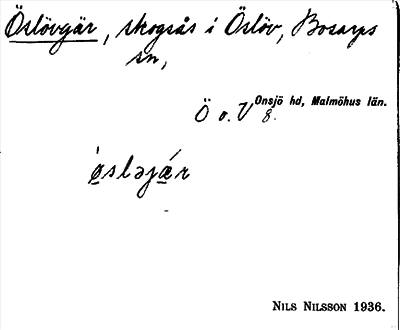 Öslövgär, skogsås i Öslöv, Bosarps
sn,
Onsjö hd, Malmöhus län.
Ö o. V 8.
ˈøsləjǽr
NILS NILSSON 1936.